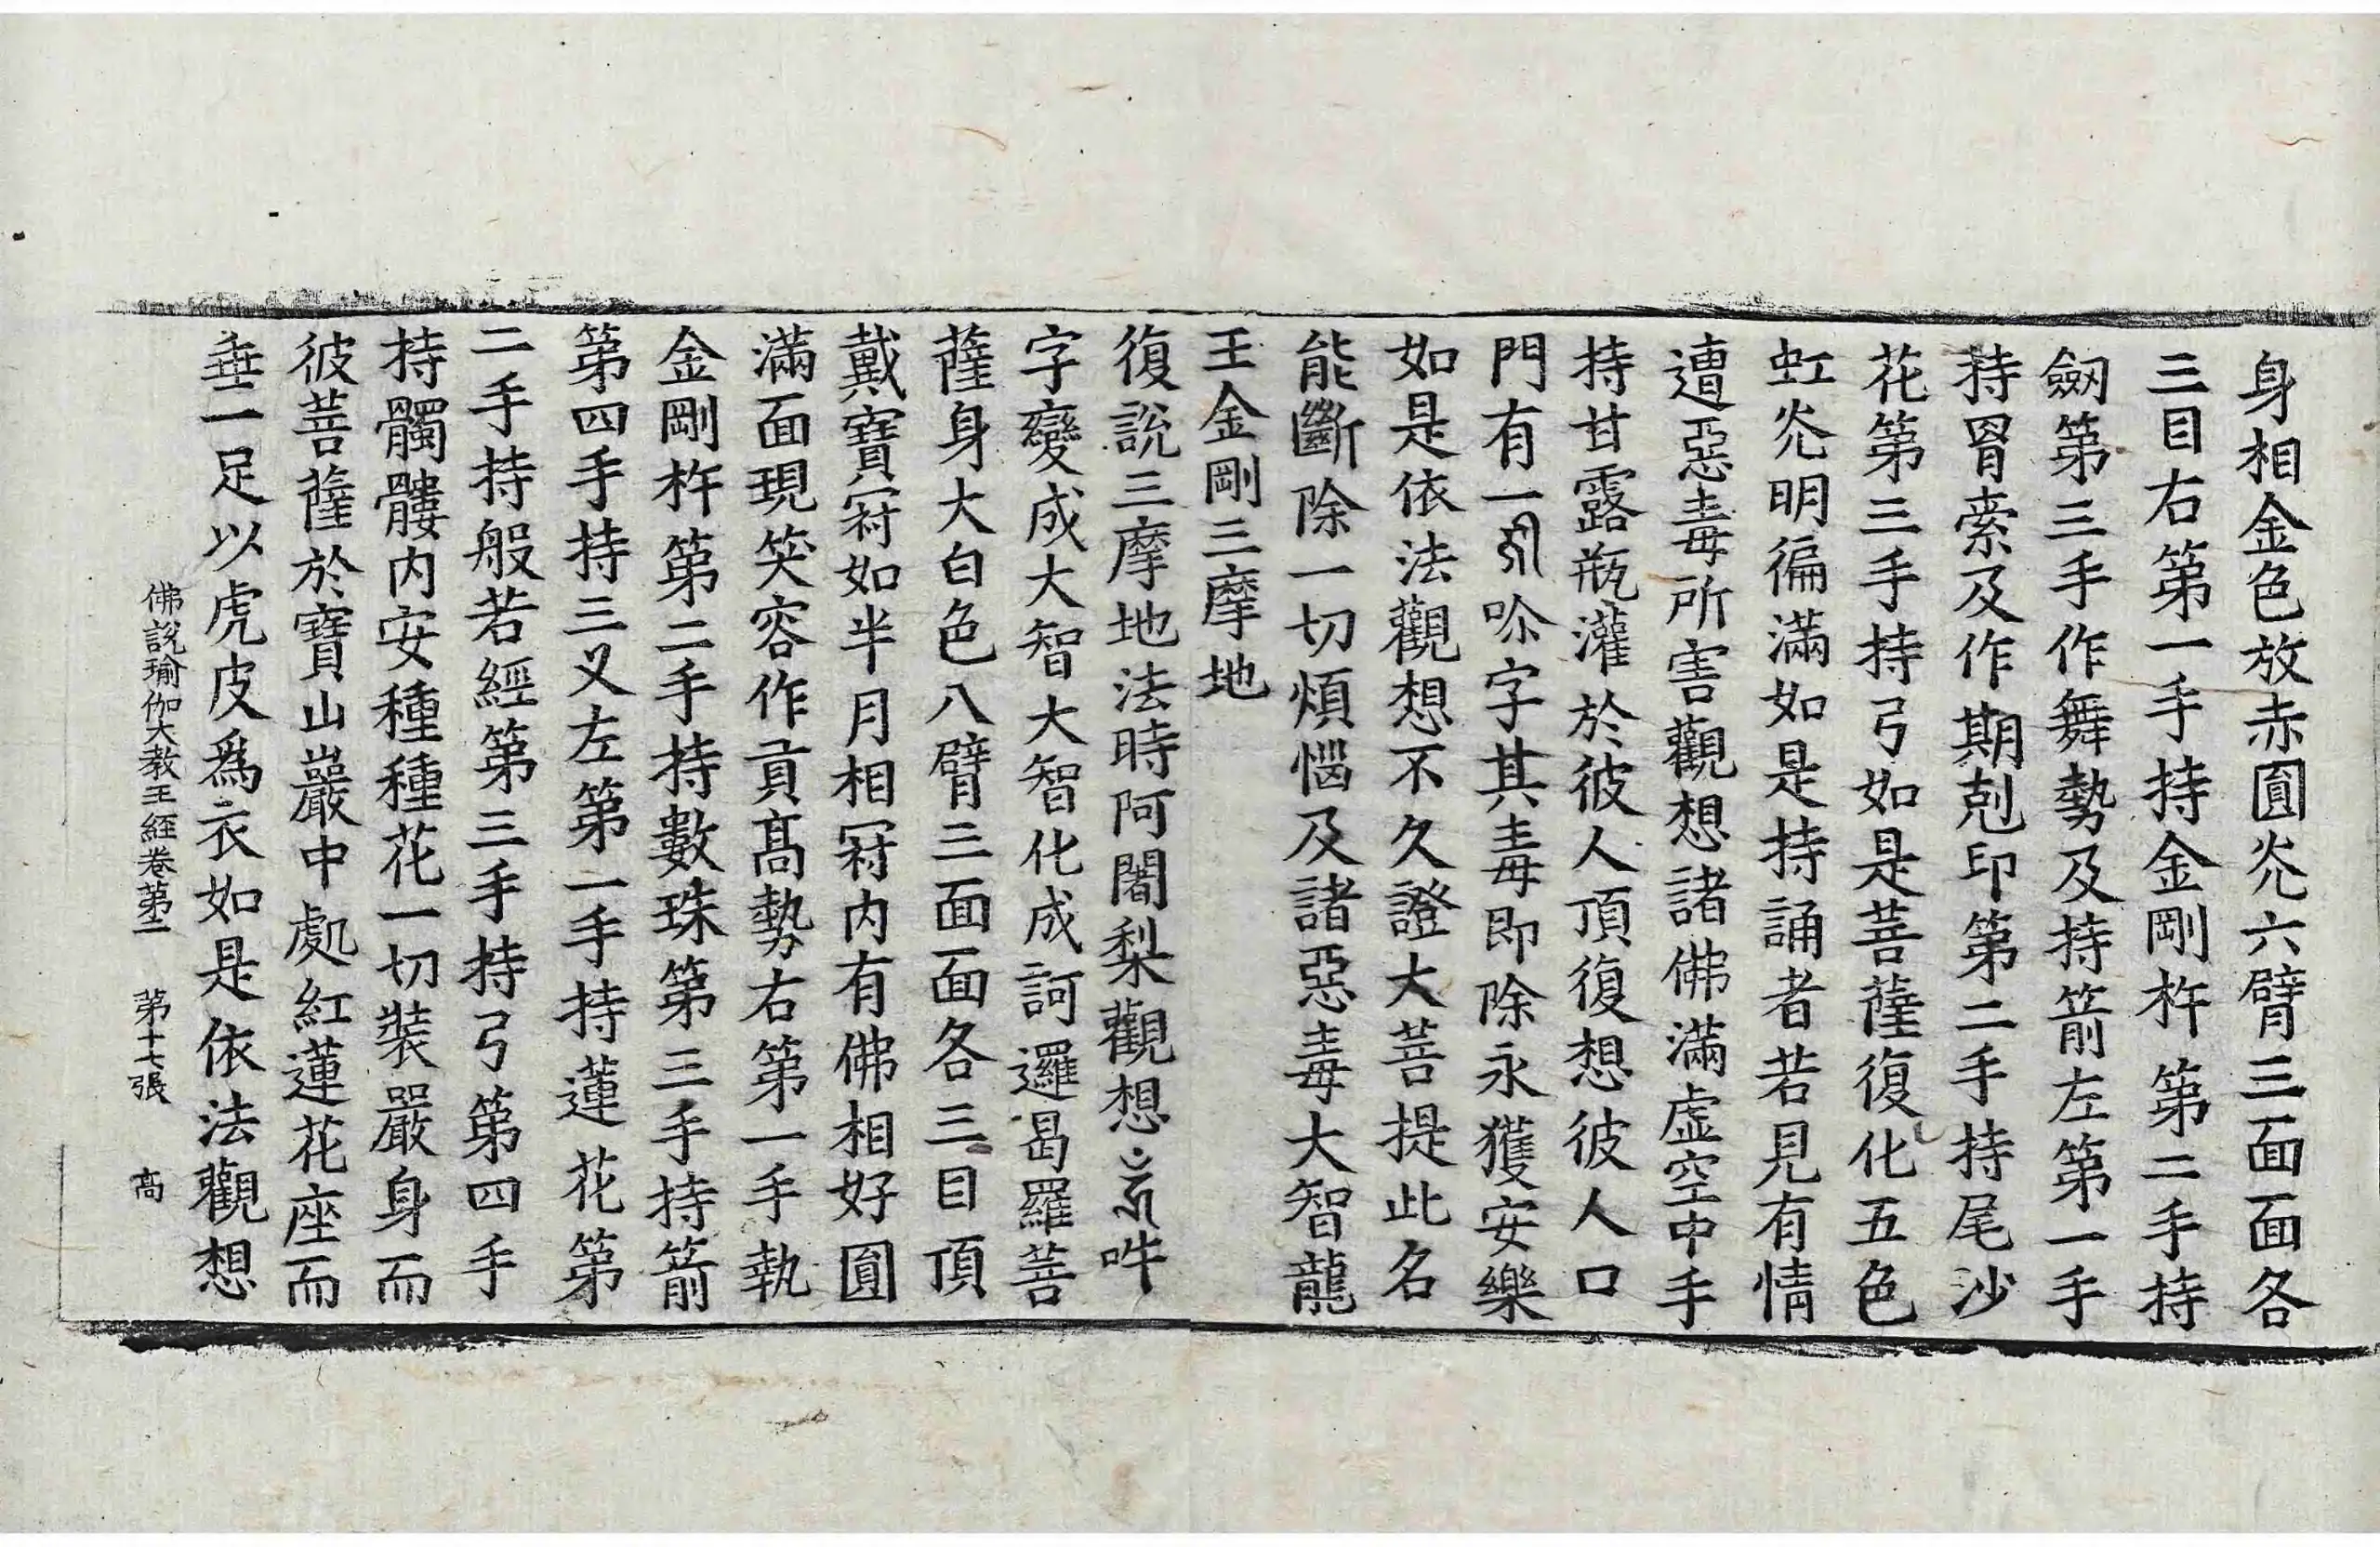 身相金色放赤圓光六臂三面面各
三目右第一手持金剛杵第二手持
劔第三手作舞勢及持箭左第一手
持罥索及作期剋印第二手持尾沙
花第三手持弓如是菩薩復化五色
虹光明徧滿如是持誦者若見有情
遭惡毒所害觀想諸佛滿虛空中手
持甘露瓶灌於彼人頂復想彼人口
門有一吩字其毒即除永獲安樂
如是依法觀想不久證大菩提此名
能斷除一切煩惱及諸惡毒大智龍
王金剛三摩地
復說三摩地法時阿闍梨觀想吽
字變成大智大智化成訶邏曷羅菩
薩身大白色八臂三面面各三目頂
戴寶冠如半月相冠内有佛相好圓
滿面現笑容作貢髙勢右第一手執
金剛杵第二手持數珠第三手持箭
第四手持三叉左第一手持蓮花第
二手持般若經第三手持弓第四手
持髑髏内安種種花一切裝嚴身而
彼菩薩於寶山巖中處紅蓮花座而
垂一足以虎皮爲衣如是依法觀想
佛說瑜伽大教王經卷第二 第十七張 髙